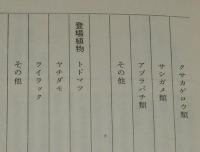 クサカゲロウ類
サシガメ類
アブラバチ類
その他
登場植物
トドマツ
ヤチダモ
ライラック
その他